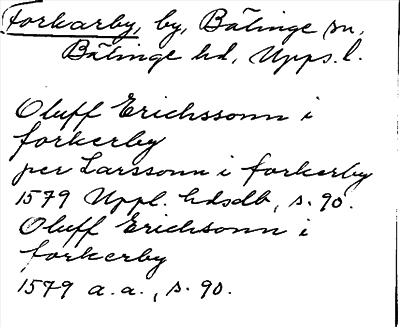 Forkarby, by, Bälinge sn,
Bälinge hd, Upps. l.
Oluff Erichssonn i
forkerby
per Larssonn i forkerby
1579 Uppl. hdsdb, s. 90.
Oluff Erichsonn i
forkerby
1579 a.a., s. 90.